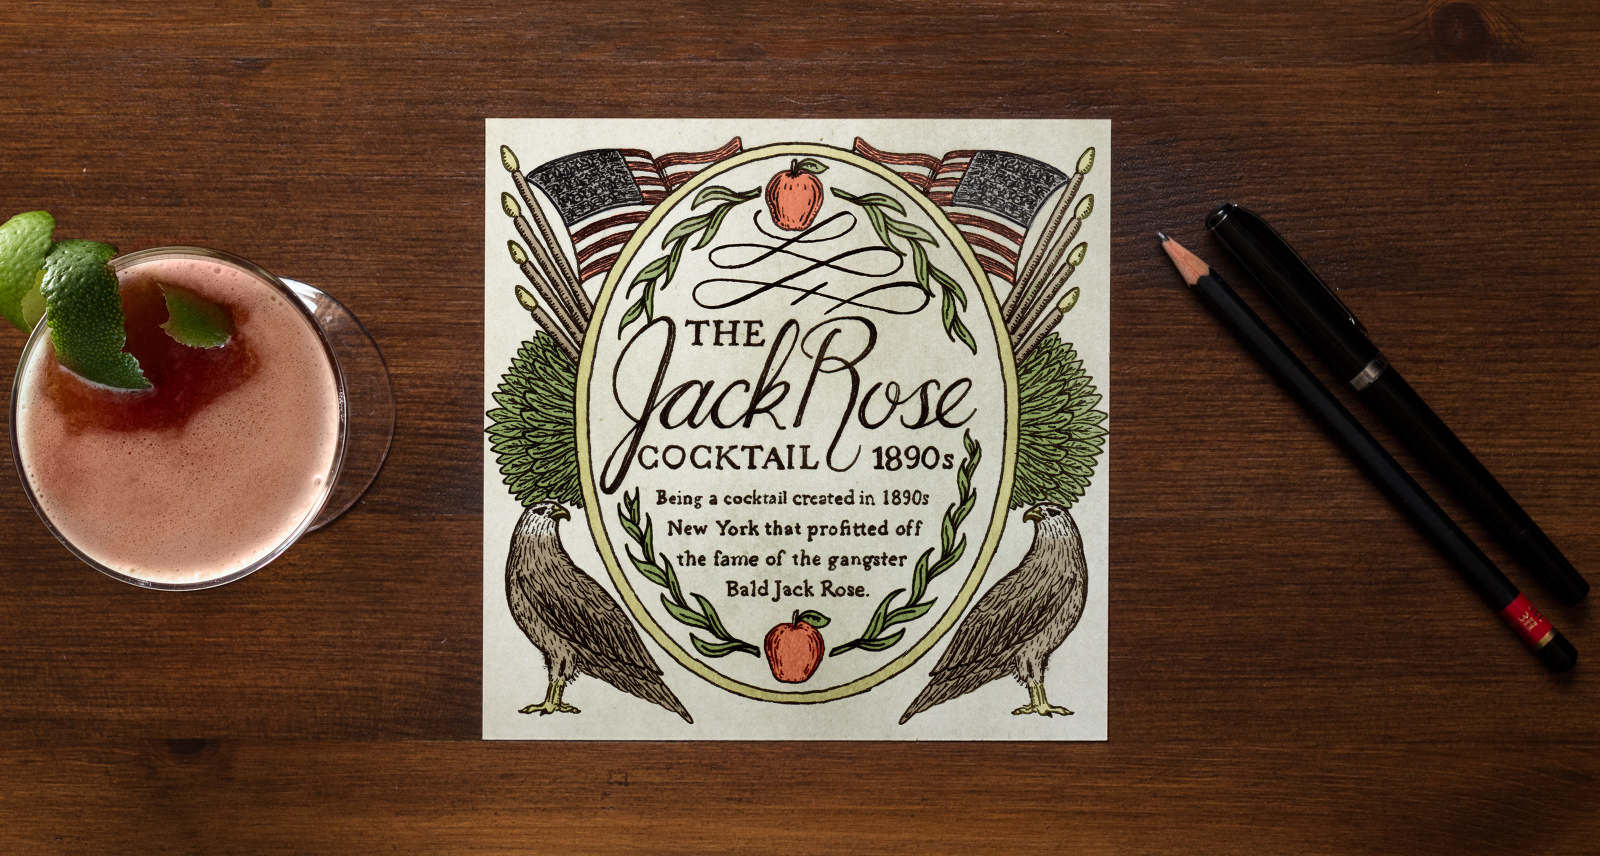 THE
Jack Rose
COCKTAIL 1890s
Being a cocktail created in 1890s
New York that profitted off
the fame of the gangster
Bald Jack Rose.